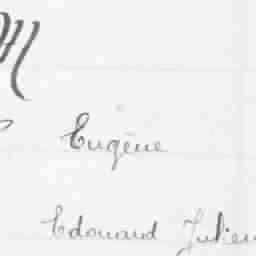 Eugène
Edouard Julien